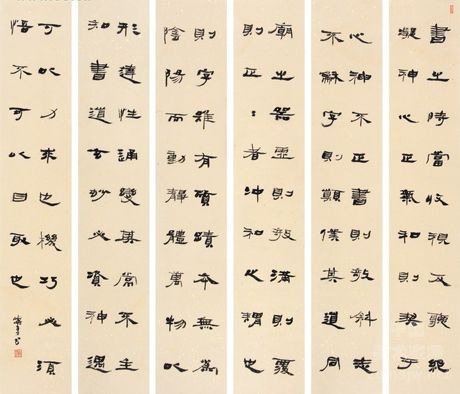 書之時當收視反聽絕
凝神心正氣和則契于
心神不正書則攲斜志
不龢字則顛僕其道同
廟之器虛則攲滿則覆
則正：者沖和之謂也
則字雖有質蹟本無為
陰陽而動靜體萬物以
形達性通變其常不主
知書道玄妙必資神遇
可以力求也機巧必須
悟不可以目取也